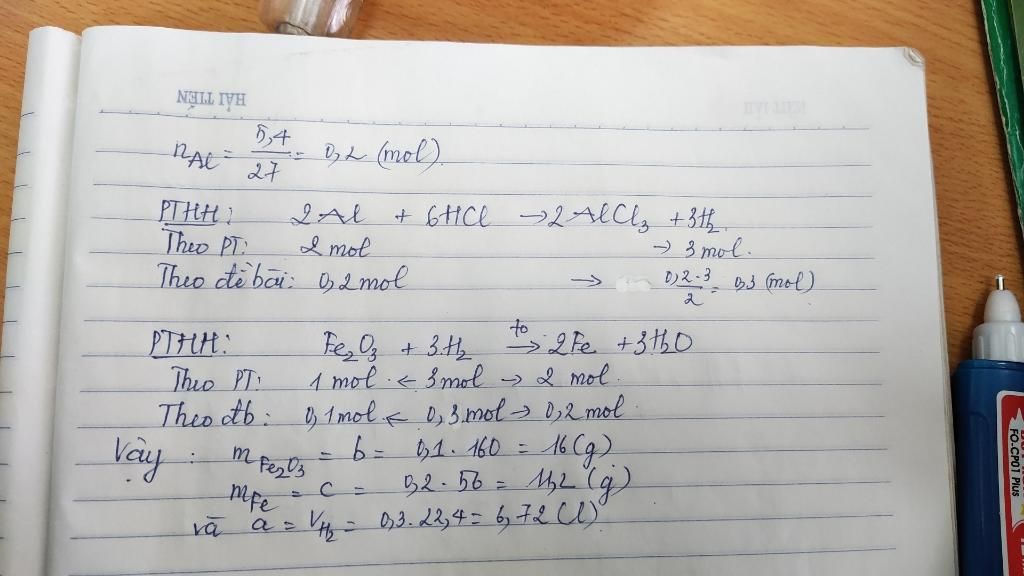 HẢI TIẾN
n_Al = 5,4/27 = 0,2 (mol).
PTHH: 2Al + 6HCl → 2AlCl₃ + 3H₂
Theo PT: 2 mol → 3 mol.
Theo đề bài: 0,2 mol → 0,2·3/2 = 0,3 (mol)
PTHH: Fe₂O₃ + 3H₂ →(to) 2Fe + 3H₂O
Theo PT: 1 mol ← 3mol → 2 mol.
Theo đb: 0,1mol ← 0,3mol → 0,2mol.
Vậy: m_Fe₂O₃ = b = 0,1 . 160 = 16 (g)
m_Fe = c = 0,2 . 56 = 11,2 (g)
và a = V_H₂ = 0,3 . 22,4 = 6,72 (l)
FO-CP01 Plus